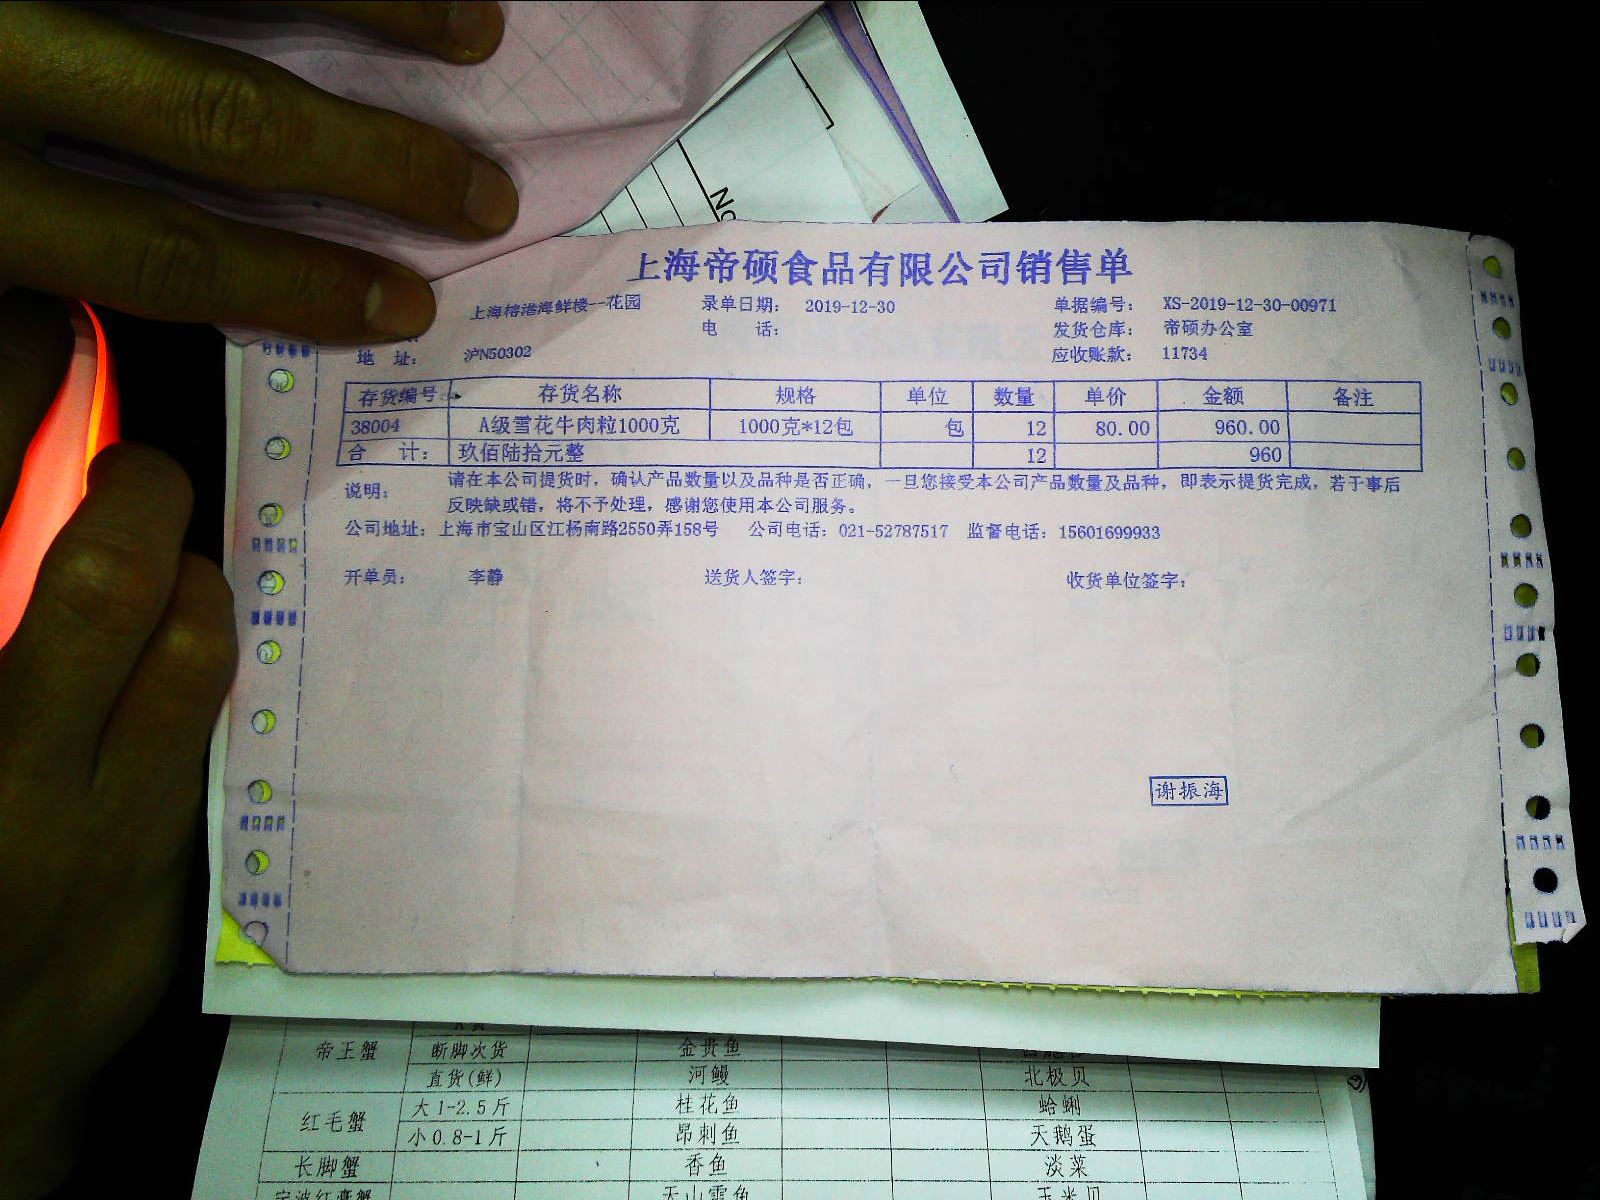 No
上海帝硕食品有限公司销售单
上海榕港海鲜楼--花园 录单日期: 2019-12-30 单据编号: XS-2019-12-30-00971
电 话: 发货仓库: 帝硕办公室
地 址: 沪N50302 应收账款: 11734
存货编号 存货名称 规格 单位 数量 单价 金额 备注
38004 A级雪花牛肉粒1000克 1000克*12包 包 12 80.00 960.00
合 计: 玖佰陆拾元整 12 960
说明: 请在本公司提货时，确认产品数量以及品种是否正确，一旦您接受本公司产品数量及品种，即表示提货完成，若于事后
反映缺或错，将不予处理，感谢您使用本公司服务。
公司地址: 上海市宝山区江杨南路2550弄158号 公司电话: 021-52787517 监督电话: 15601699933
开单员: 李静 送货人签字: 收货单位签字:
谢振海
帝王蟹 断脚次货 金贵鱼
直货(鲜) 河鳗 北极贝
红毛蟹 大1-2.5斤 桂花鱼 蛤蜊
小0.8-1斤 昂刺鱼 天鹅蛋
长脚蟹 香鱼 淡菜